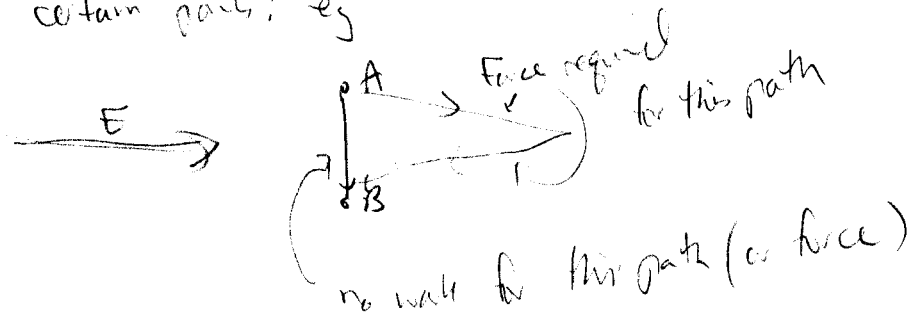 certain paths: eg
A
Force required
for this path
E
B
no work for this path (or force)